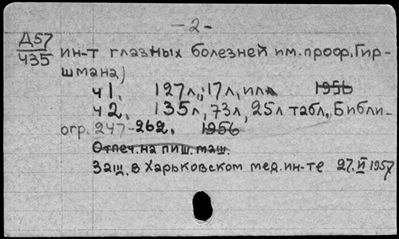 - 2 -
Д57
435
ин-т глазных болезней им. проф. Гир-
шмана)
ч 1. 127л., 17л. илл 1956
ч 2. 135л, 73л, 25л табл, Библи-
огр. 247-262. 1956
Отпеч. на пиш. маш.
Защ. в Харьковском мед. ин-те 27.II 1957